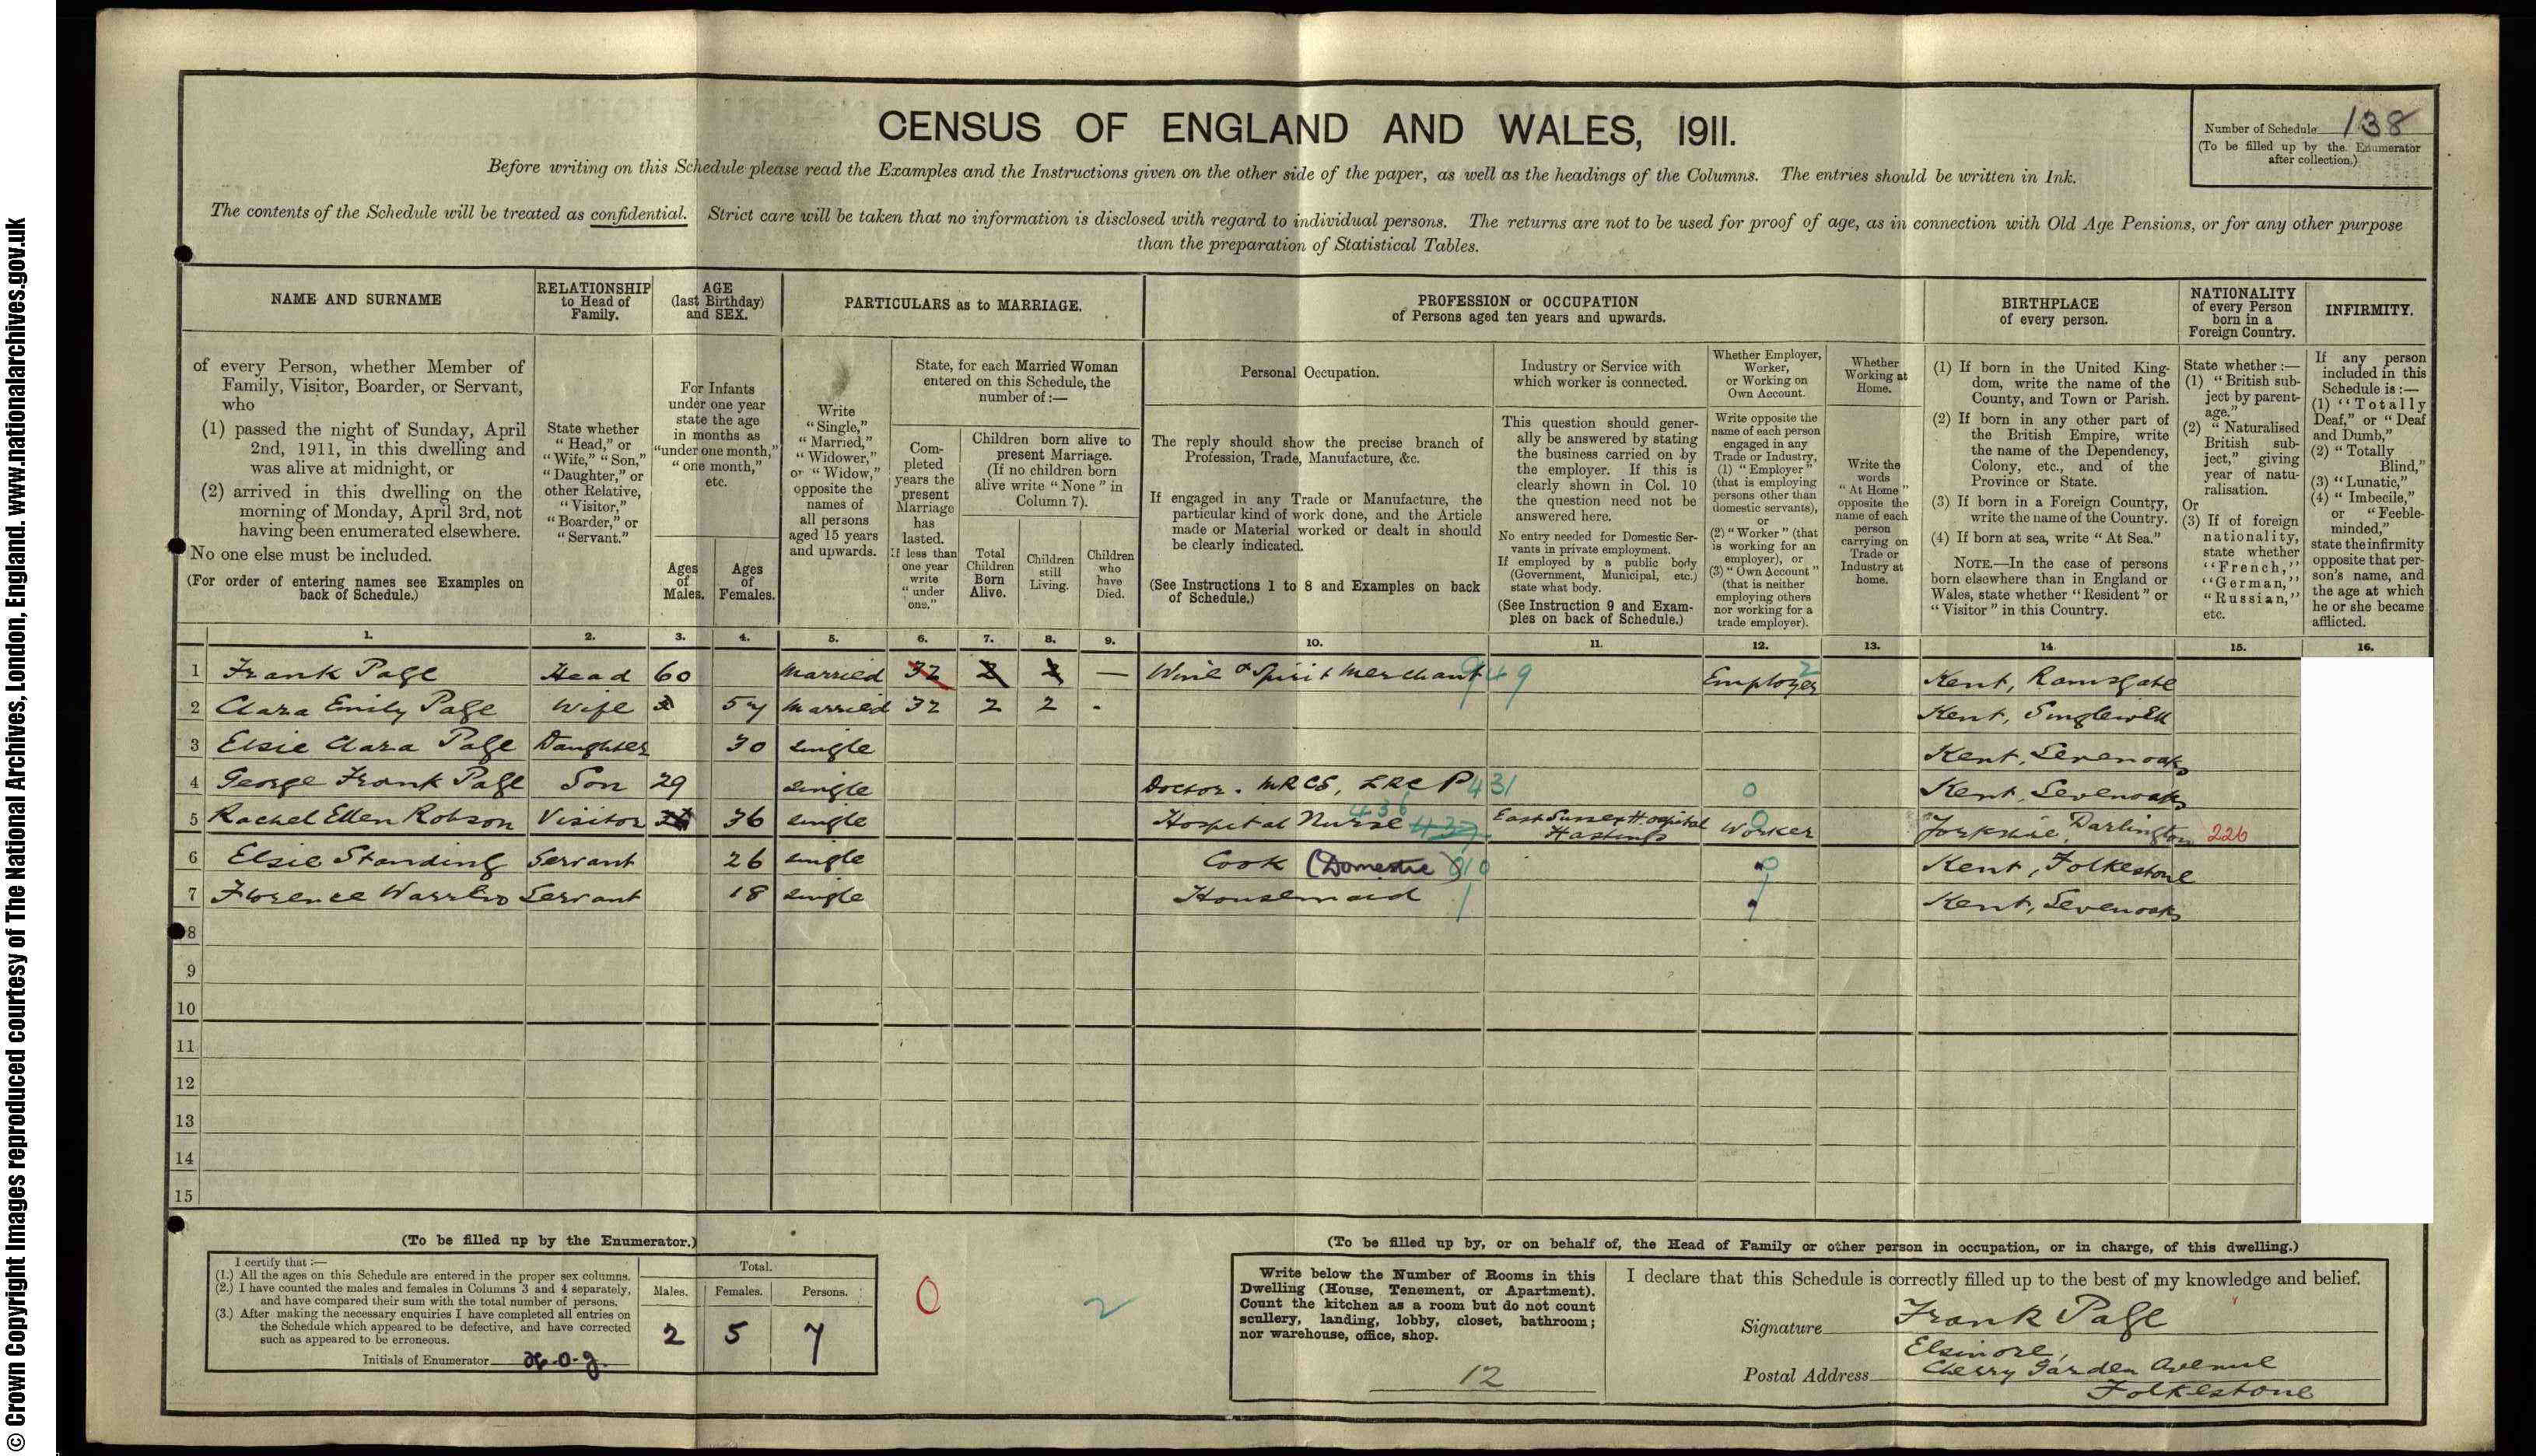 CENSUS OF ENGLAND AND WALES, 1911.
Number of Schedule 138
(To be filled up by the Enumerator
after collection.)
Before writing on this Schedule please read the Examples and the Instructions given on the other side of the paper, as well as the headings of the Columns. The entries should be written in Ink.
The contents of the Schedule will be treated as confidential. Strict care will be taken that no information is disclosed with regard to individual persons. The returns are not to be used for proof of age, as in connection with Old Age Pensions, or for any other purpose
than the preparation of Statistical Tables.
NAME AND SURNAME
of every Person, whether Member of
Family, Visitor, Boarder, or Servant,
who
(1) passed the night of Sunday, April
2nd, 1911, in this dwelling and
was alive at midnight, or
(2) arrived in this dwelling on the
morning of Monday, April 3rd, not
having been enumerated elsewhere.
No one else must be included.
(For order of entering names see Examples on
back of Schedule.)
1.
RELATIONSHIP
to Head of
Family.
State whether
"Head," or
"Wife," "Son,"
"Daughter," or
other Relative,
"Visitor,"
"Boarder," or
"Servant."
2.
AGE
(last Birthday)
and SEX.
For Infants
under one year
state the age
in months as
"under one month,"
"one month,"
etc.
Ages
of
Males.
3.
Ages
of
Females.
4.
PARTICULARS as to MARRIAGE.
Write
"Single,"
"Married,"
"Widower,"
or "Widow,"
opposite the
names of
all persons
aged 15 years
and upwards.
5.
State, for each Married Woman
entered on this Schedule, the
number of:—
Com-
pleted
years the
present
Marriage
has
lasted.
If less than
one year
write
"under
one."
6.
Children born alive to
present Marriage.
(If no children born
alive write "None" in
Column 7).
Total
Children
Born
Alive.
7.
Children
still
Living.
8.
Children
who
have
Died.
9.
PROFESSION or OCCUPATION
of Persons aged ten years and upwards.
Personal Occupation.
The reply should show the precise branch of
Profession, Trade, Manufacture, &c.
If engaged in any Trade or Manufacture, the
particular kind of work done, and the Article
made or Material worked or dealt in should
be clearly indicated.
(See Instructions 1 to 8 and Examples on back
of Schedule.)
10.
Industry or Service with
which worker is connected.
This question should gener-
ally be answered by stating
the business carried on by
the employer. If this is
clearly shown in Col. 10
the question need not be
answered here.
No entry needed for Domestic Ser-
vants in private employment.
If employed by a public body
(Government, Municipal, etc.)
state what body.
(See Instruction 9 and Exam-
ples on back of Schedule.)
11.
Whether Employer,
Worker,
or Working on
Own Account.
Write opposite the
name of each person
engaged in any
Trade or Industry,
(1) "Employer"
(that is employing
persons other than
domestic servants),
or
(2) "Worker" (that
is working for an
employer), or
(3) "Own Account"
(that is neither
employing others
nor working for a
trade employer).
12.
Whether
Working at
Home.
Write the
words
"At Home"
opposite the
name of each
person
carrying on
Trade or
Industry at
home.
13.
BIRTHPLACE
of every person.
(1) If born in the United King-
dom, write the name of the
County, and Town or Parish.
(2) If born in any other part of
the British Empire, write
the name of the Dependency,
Colony, etc., and of the
Province or State.
(3) If born in a Foreign Country,
write the name of the Country.
(4) If born at sea, write "At Sea."
NOTE.—In the case of persons
born elsewhere than in England or
Wales, state whether "Resident" or
"Visitor" in this Country.
14.
NATIONALITY
of every Person
born in a
Foreign Country.
State whether:—
(1) "British sub-
ject by parent-
age."
(2) "Naturalised
British sub-
ject," giving
year of natu-
ralisation.
Or
(3) If of foreign
nationality,
state whether
"French,"
"German,"
"Russian,"
etc.
15.
INFIRMITY.
If any person
included in this
Schedule is:—
(1) "Totally
Deaf," or "Deaf
and Dumb,"
(2) "Totally
Blind,"
(3) "Lunatic,"
(4) "Imbecile,"
or "Feeble-
minded,"
state the infirmity
opposite that per-
son's name, and
the age at which
he or she became
afflicted.
16.
1 Frank Page Head 60 Married 32 2 2 — Wine & Spirit Merchant 949 Employer 2 Kent, Ramsgate
2 Clara Emily Page Wife 57 Married 32 2 2 - Kent, Singlewell
3 Elsie Clara Page Daughter 30 single Kent, Sevenoaks
4 George Frank Page Son 29 single Doctor. MRCS, LRCP 431 0 Kent, Sevenoaks
5 Rachel Ellen Robson Visitor 36 single Hospital Nurse 436 East Sussex Hospital Hastings Worker 0 Yorkshire, Darlington 226
6 Elsie Standing Servant 26 single Cook (Domestic) 010 0 Kent, Folkestone
7 Florence Servant 18 single Housemaid Kent, Sevenoaks
8
9
10
11
12
13
14
15
(To be filled up by the Enumerator.)
I certify that:—
(1.) All the ages on this Schedule are entered in the proper sex columns.
(2.) I have counted the males and females in Columns 3 and 4 separately,
and have compared their sum with the total number of persons.
(3.) After making the necessary enquiries I have completed all entries on
the Schedule which appeared to be defective, and have corrected
such as appeared to be erroneous.
Initials of Enumerator
Total.
Males. Females. Persons.
2 5 7
0
2
(To be filled up by, or on behalf of, the Head of Family or other person in occupation, or in charge, of this dwelling.)
Write below the Number of Rooms in this
Dwelling (House, Tenement, or Apartment).
Count the kitchen as a room but do not count
scullery, landing, lobby, closet, bathroom;
nor warehouse, office, shop.
12
I declare that this Schedule is correctly filled up to the best of my knowledge and belief.
Signature Frank Page
Postal Address Elsinore,
Cherry Garden Avenue
Folkestone
© Crown Copyright Images reproduced courtesy of The National Archives, London, England. www.nationalarchives.gov.uk